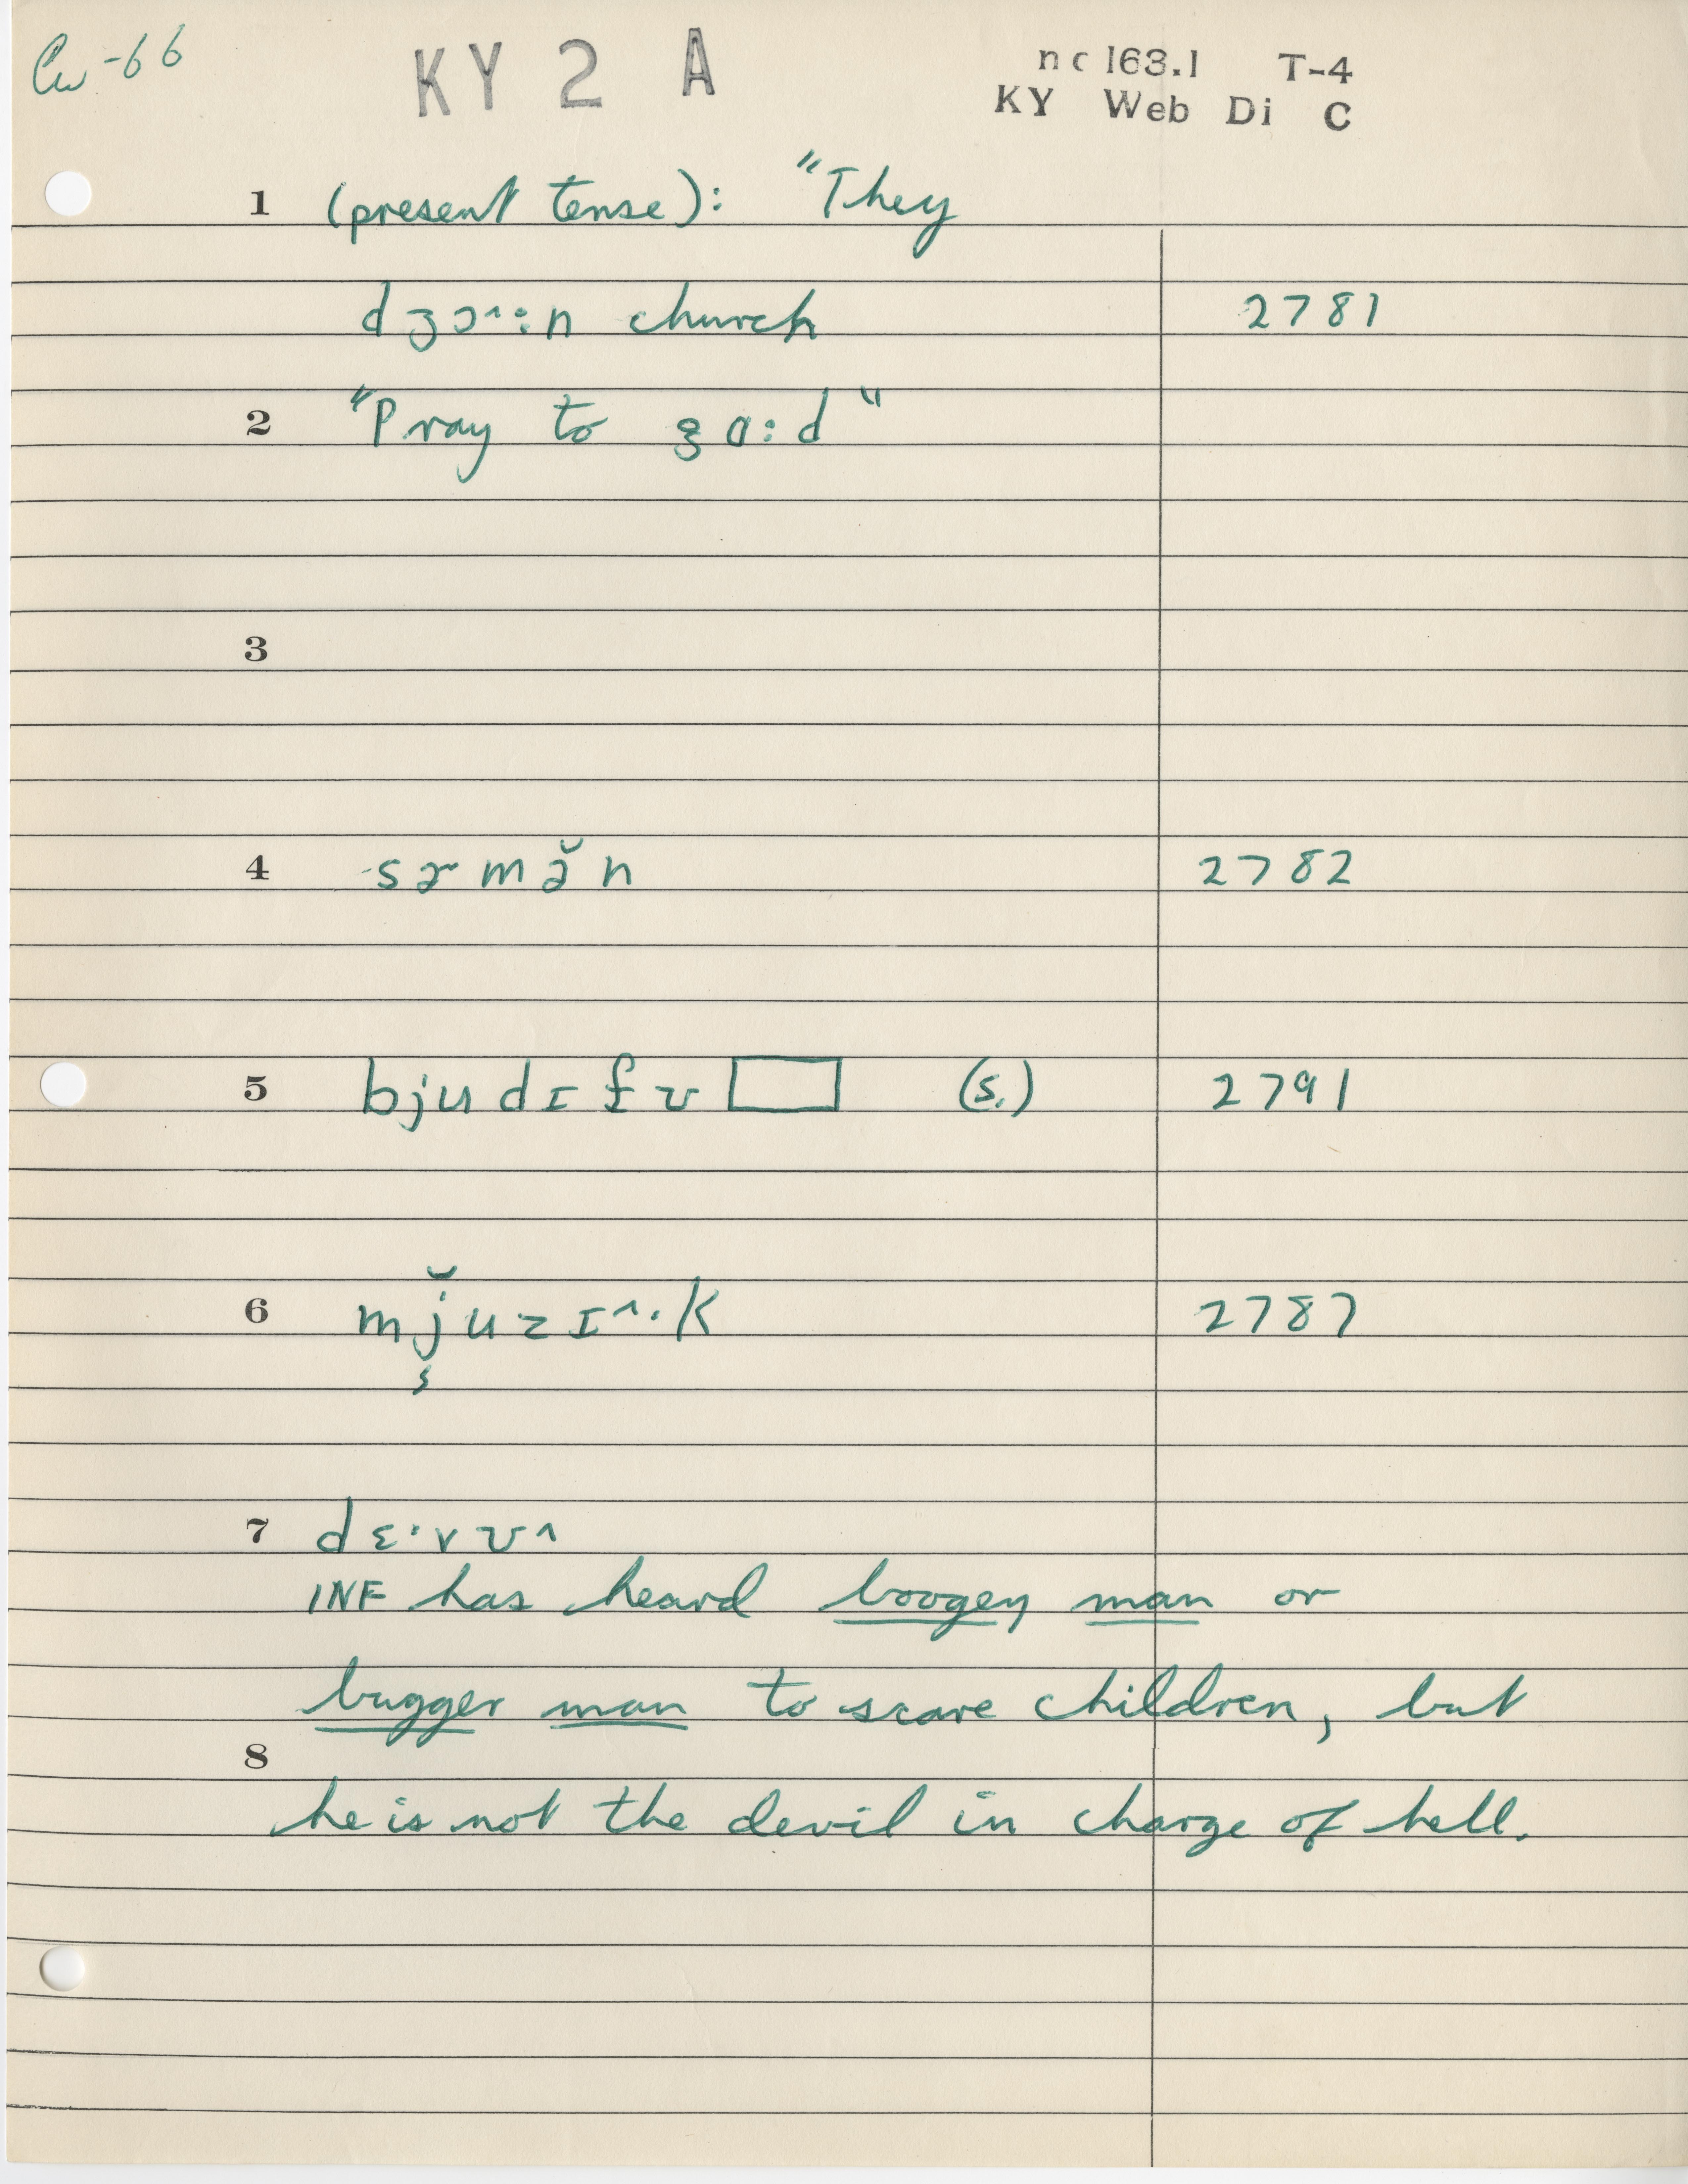 Cw-66 KY 2 A nc 163.1 T-4
KY Web Di C
1 (present tense): "They
dʒɔ^:n church 2781
2 "Pray to gɑ:d"
3
4 sɚmə̆n 2782
5 bjudɪfʊ (s.) 2791
6 mj̆uzɪ^·k 2787
7 dɛ·vʊ^
INF has heard boogey man or
bugger man to scare children, but
8
he is not the devil in charge of hell.